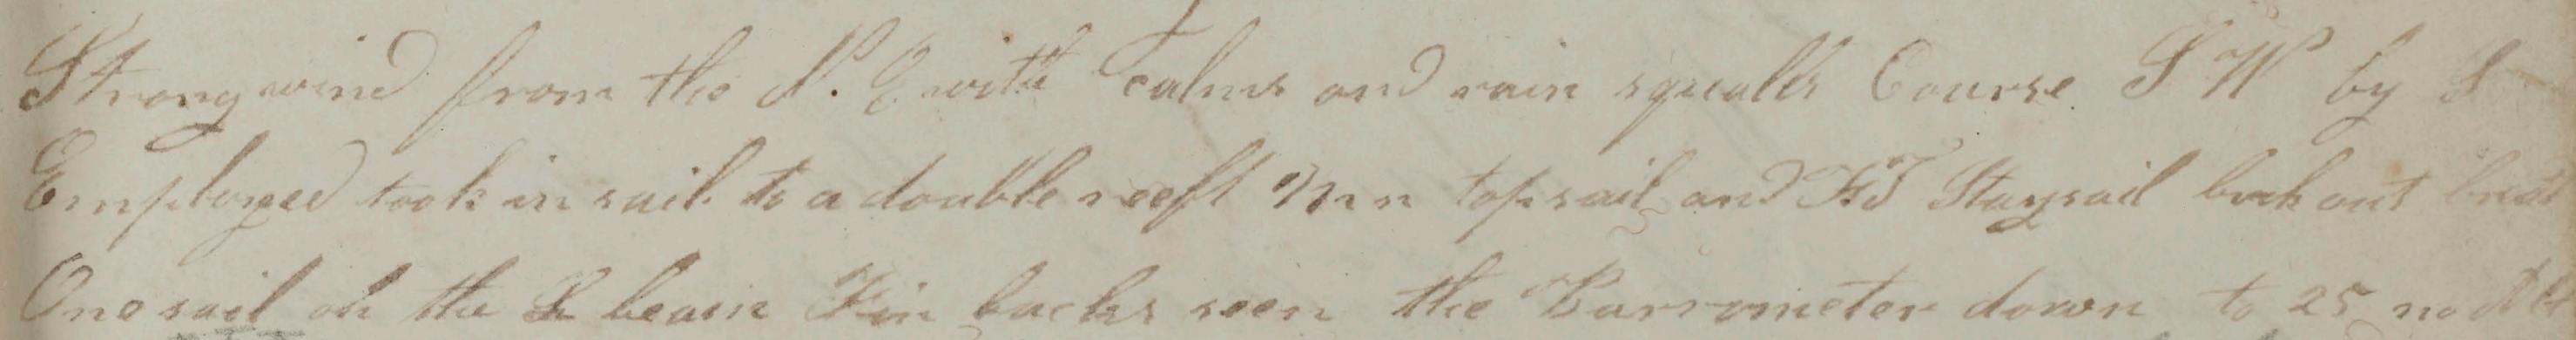 Strong wind from the N. E with calms and rain squalls Course S W by S
Employed took in sail to a double reeft Mn topsail and F T Staysail
One sail on the L beam Fin backs seen the Barrometer down to 25 no